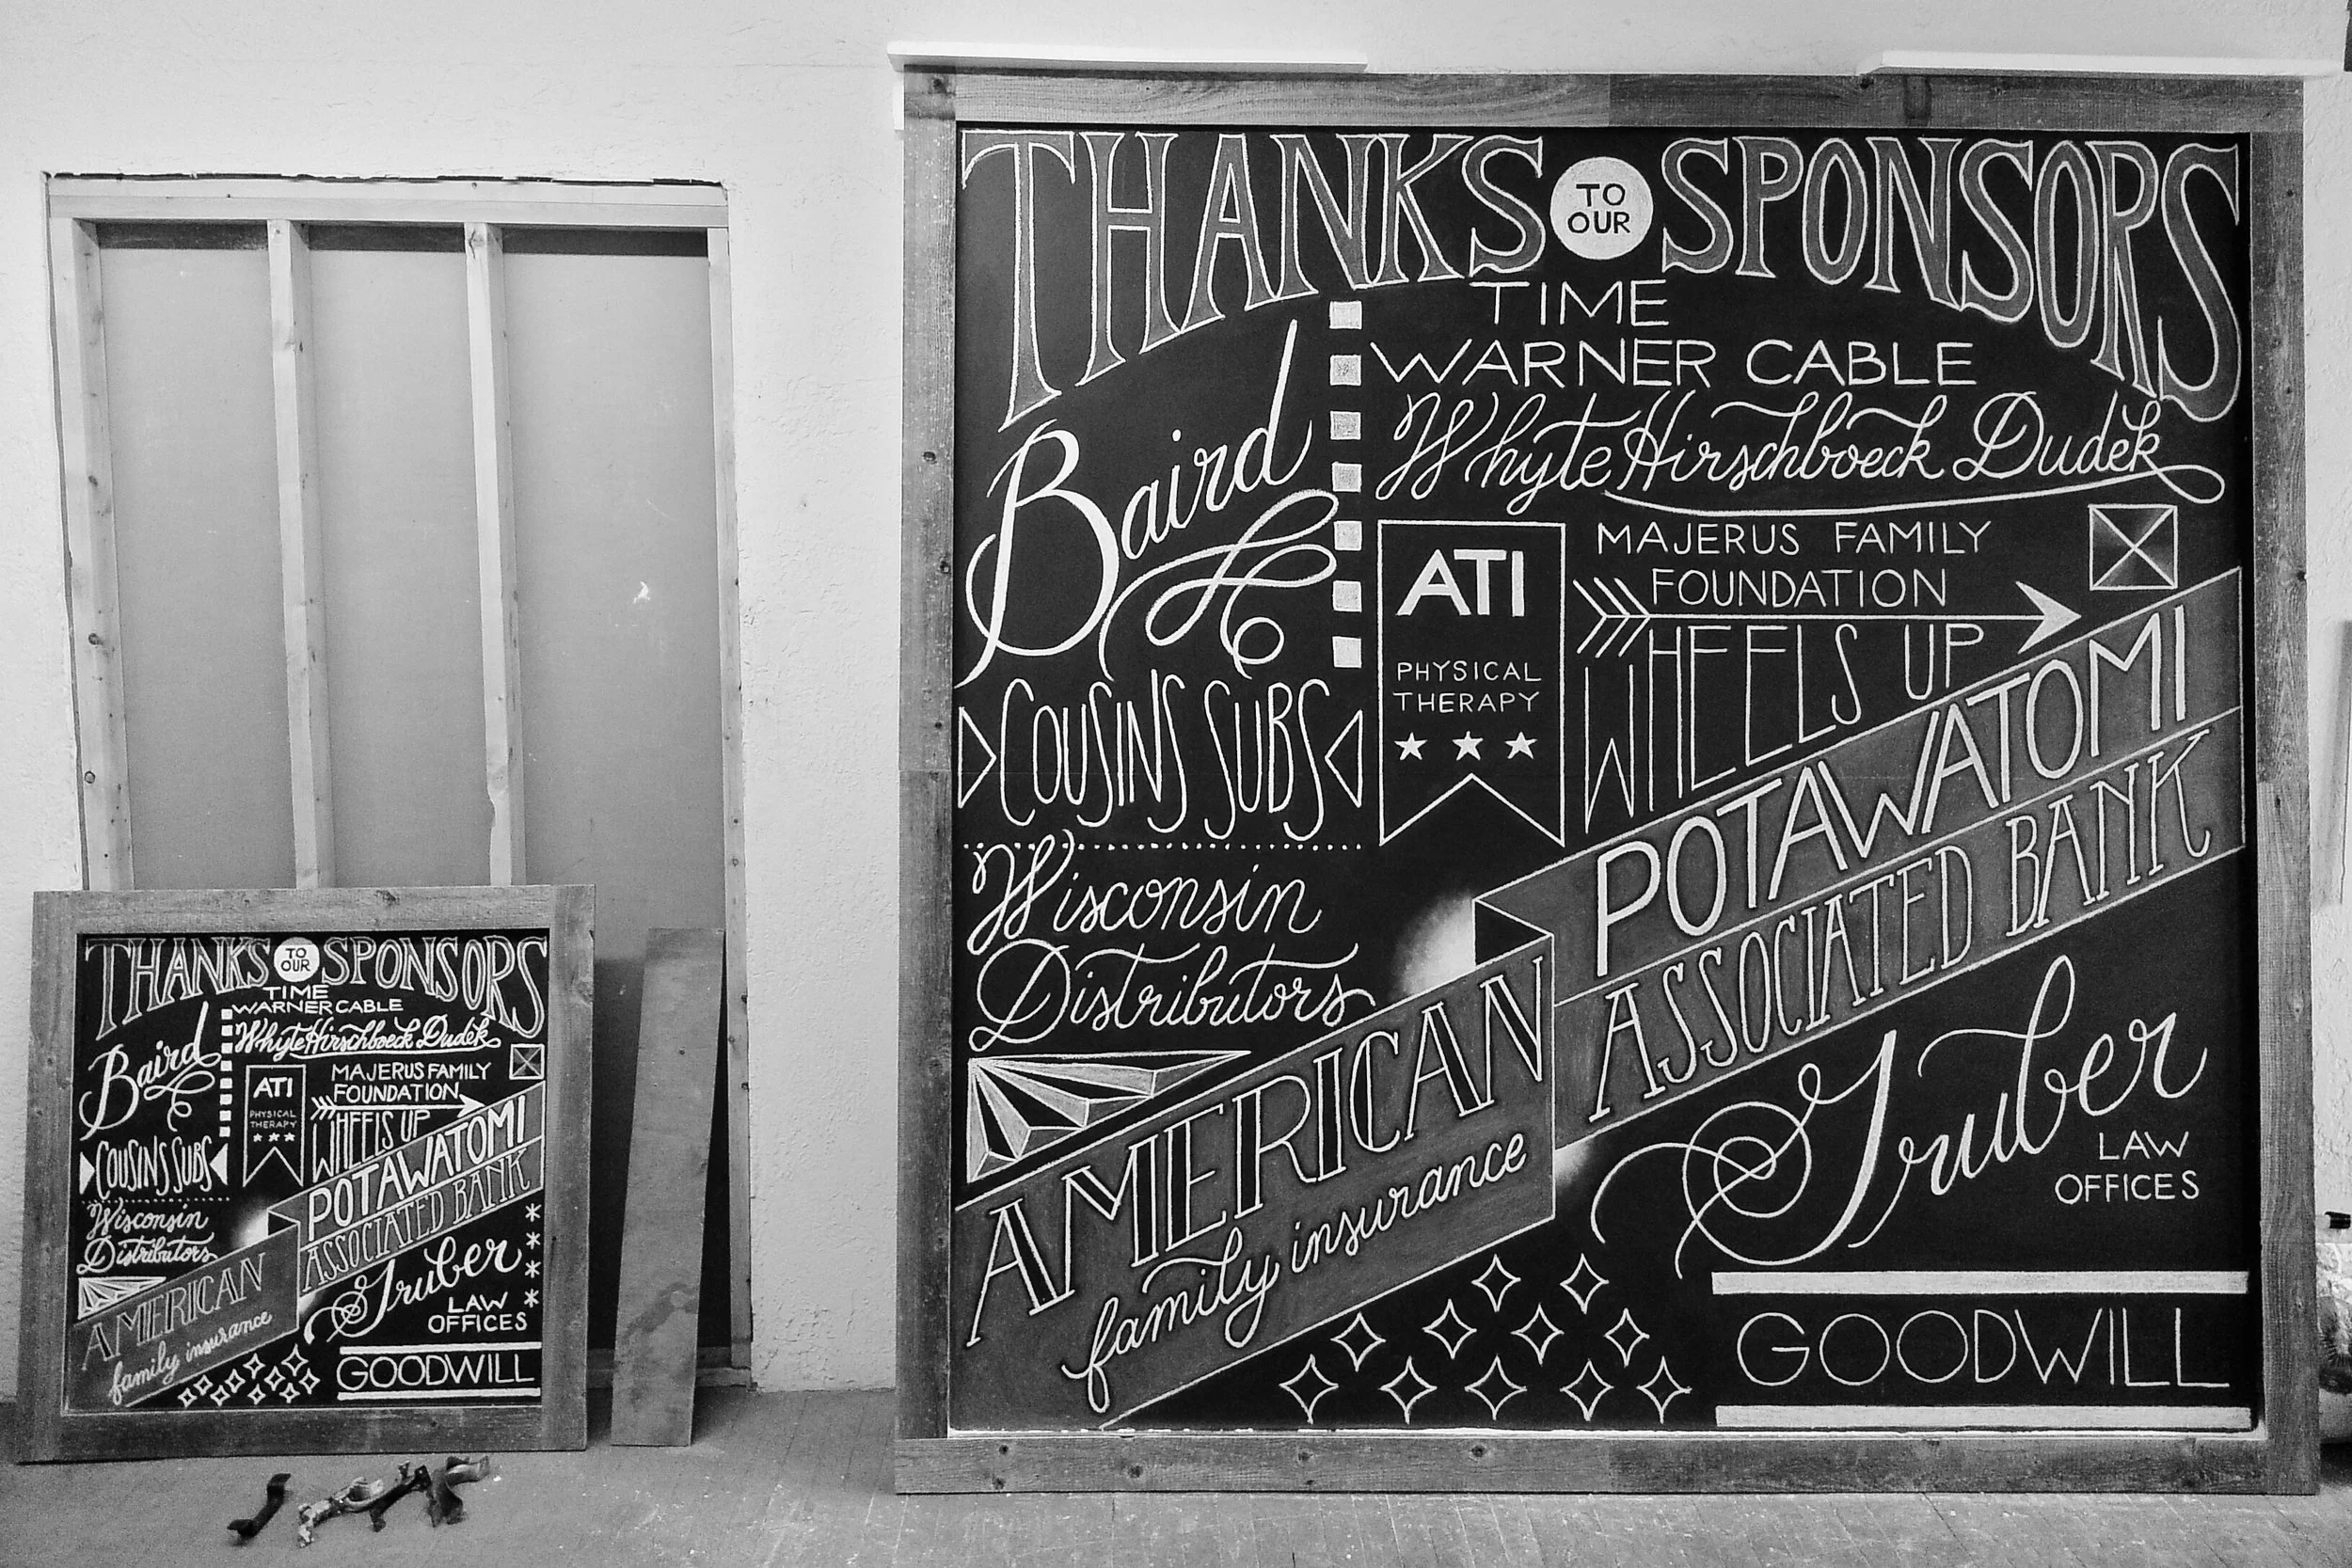 THANKS TO OUR SPONSORS
TIME
WARNER CABLE
Whyte Hirschboeck Dudek
Baird
ATI
PHYSICAL
THERAPY
MAJERUS FAMILY
FOUNDATION
WHEELS UP
COUSINS SUBS
Wisconsin
Distributors
POTAWATOMI
ASSOCIATED BANK
AMERICAN
family insurance
Gruber
LAW
OFFICES
GOODWILL
THANKS TO OUR SPONSORS
TIME
WARNER CABLE
Whyte Hirschboeck Dudek
Baird
ATI
PHYSICAL
THERAPY
MAJERUS FAMILY
FOUNDATION
WHEELS UP
COUSINS SUBS
Wisconsin
Distributors
POTAWATOMI
ASSOCIATED BANK
AMERICAN
family insurance
Gruber
LAW
OFFICES
GOODWILL